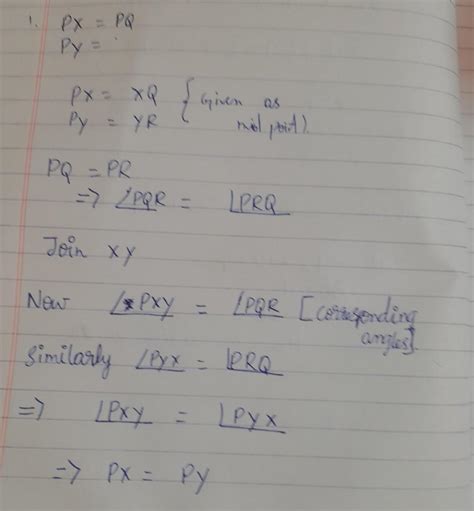 1. PX = PQ
PY =
PX = XQ { Given as
PY = YR mid point).
PQ = PR
=> ∠PQR = ∠PRQ
Join XY
Now ∠PXY = ∠PQR [corresponding
angles].
Similarly ∠PYX = ∠PRQ
=> ∠PXY = ∠PYX
=> PX = PY